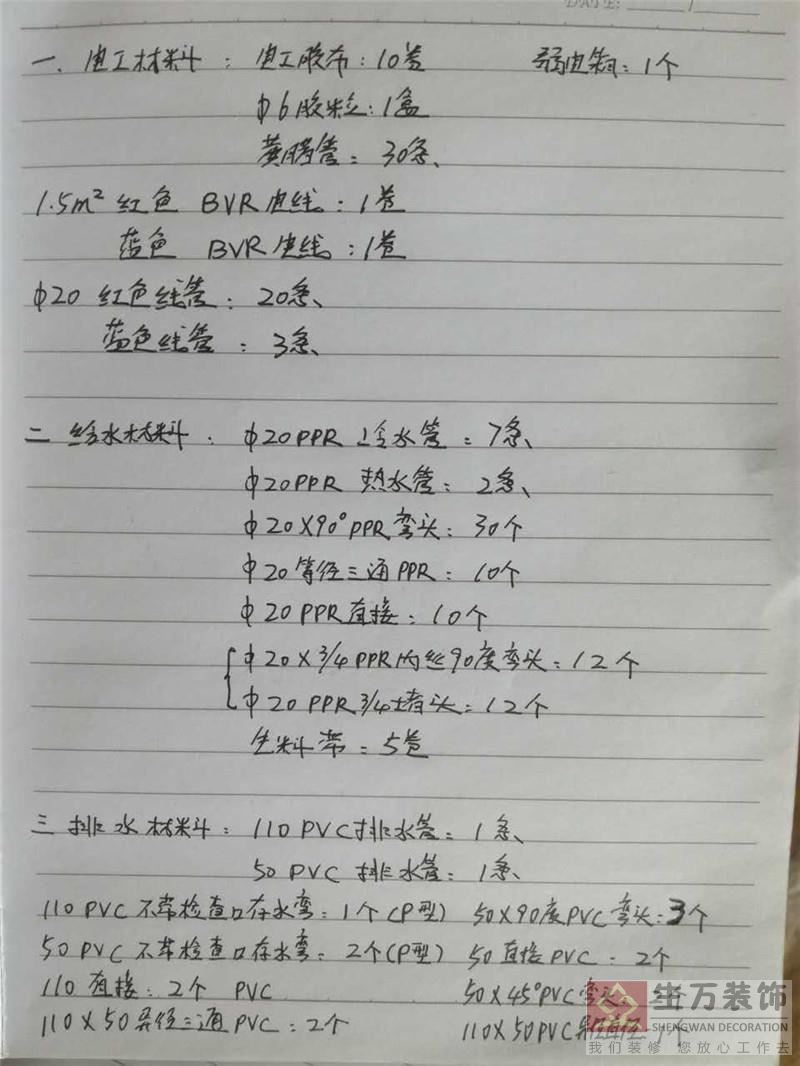 DATE: /
一、电工材料: 电工胶布:10卷 弱电箱:1个
φ6胶粒:1盒
黄腊管:30条、
1.5m² 红色 BVR电线:1卷
蓝色 BVR电线:1卷
φ20 红色线管:20条、
蓝色线管:3条、
二 给水材料: φ20PPR 冷水管:7条、
φ20PPR 热水管:2条、
φ20X90°PPR弯头:30个
φ20等径三通PPR:10个
φ20PPR直接:10个
φ20X3/4PPR内丝90度弯头:12个
φ20PPR3/4堵头:12个
生料带:5卷
三 排水材料:110PVC排水管:1条、
50PVC 排水管:1条、
110PVC不带检查口存水弯:1个(P型) 50X90度PVC弯头:3个
50PVC不带检查口存水弯:2个(P型) 50直接PVC:2个
110直接:2个 PVC 50X45°PVC弯头 个
110X50异径三通PVC:2个 110X50PVC异径直接 1个
生万装饰
SHENGWAN DECORATION
我们装修 您放心工作去